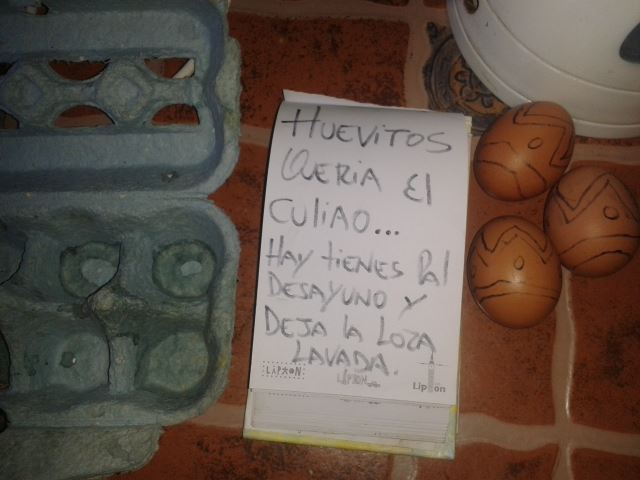 HUEVITOS
QUERIA El
CULIAO...
HAY tIENES PAl
DESAYUNO Y
DEJA la LOZA
LAVADA.
LIPTON
LIPTON
Lipton